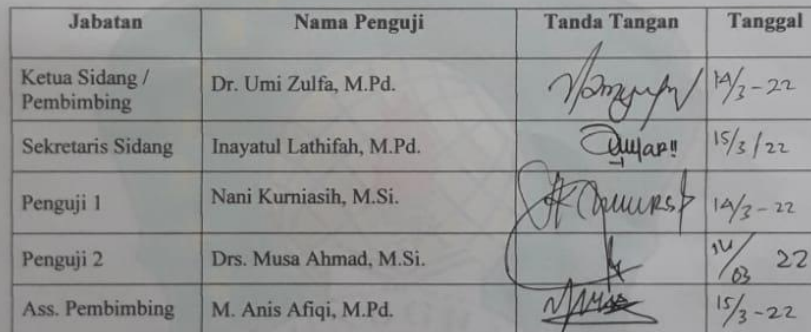 Jabatan Nama Penguji Tanda Tangan Tanggal
Ketua Sidang / Dr. Umi Zulfa, M.Pd. 14/3-22
Pembimbing
Sekretaris Sidang Inayatul Lathifah, M.Pd. 15/3/22
Penguji 1 Nani Kurniasih, M.Si. 14/3-22
Penguji 2 Drs. Musa Ahmad, M.Si. 14/03 22
Ass. Pembimbing M. Anis Afiqi, M.Pd. 15/3-22